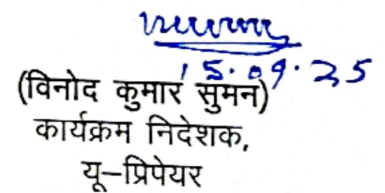 15.09.25
(विनोद कुमार सुमन)
कार्यक्रम निदेशक,
यू–प्रिपेयर